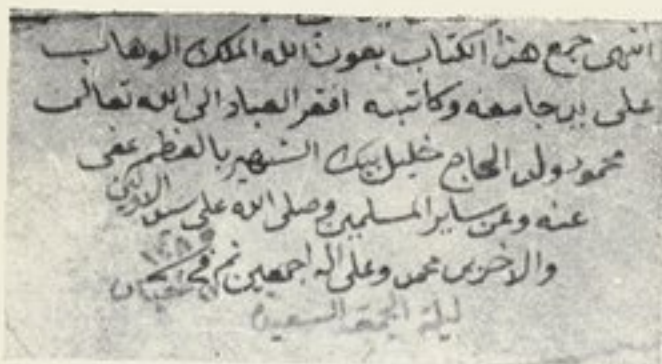 انتهى جمع هذا الكتاب بعون الله الملك الوهاب
على يد جامعه وكاتبه افقر العباد الى الله تعالى
محمود ولد الحاج خليل بيك الشهير بالعظم عفى
عنه وعن ساير المسلمين وصلى الله على سيد الاولين
والاخرين محمد وعلى اله اجمعين تم في
ليلة الجمعة السعيدة